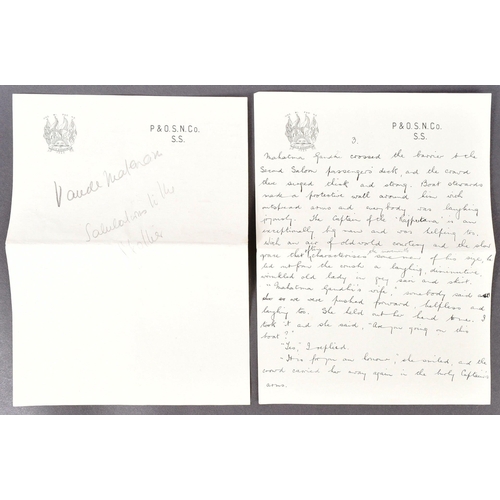 P & O. S. N. Co.
S.S.
Vande Mataram
Salutations to the
Mother
P & O. S. N. Co.
S.S.
3.
Mahatma Gandhi crossed the barrier to the
Second Saloon passengers deck, and the crowd
there surged thick and strong. Boat stewards
made a protective wall around him with
outspread arms and everybody was laughing
joyously. The Captain of the "Rajputana" is an
exceptionally big man and was helping too.
With an air of old world courtesy and the slow
grace that often characterises the movements of
some men of his size, he
led out from the crush a laughing, diminutive,
wrinkled old lady in grey sari and shirt.
"Mahatma Gandhi's wife" somebody said
as we are pushed forward, helpless and
laughing too. She held out her hand to me. I
took it and she said, "Are you going on this
boat?"
"Yes," I replied.
"It is for you an honour," she smiled, and the
crowd carried her away again in the burly Captain's
arms.